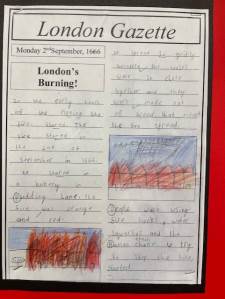 London Gazette
Monday 2nd September, 1666
London's
Burning!
In the early hours
of the
fire started. The
fire started in
the 2nd of
September in 1666.
It started in
a bakery in
Pudding Lane. The
fire was orange
and red.
it spread so quickly
because the
were so close
together and they
were made out
of wood that made
the fire spread.
People were using
fire hooks,
and the
human chain to try
to stop the fire